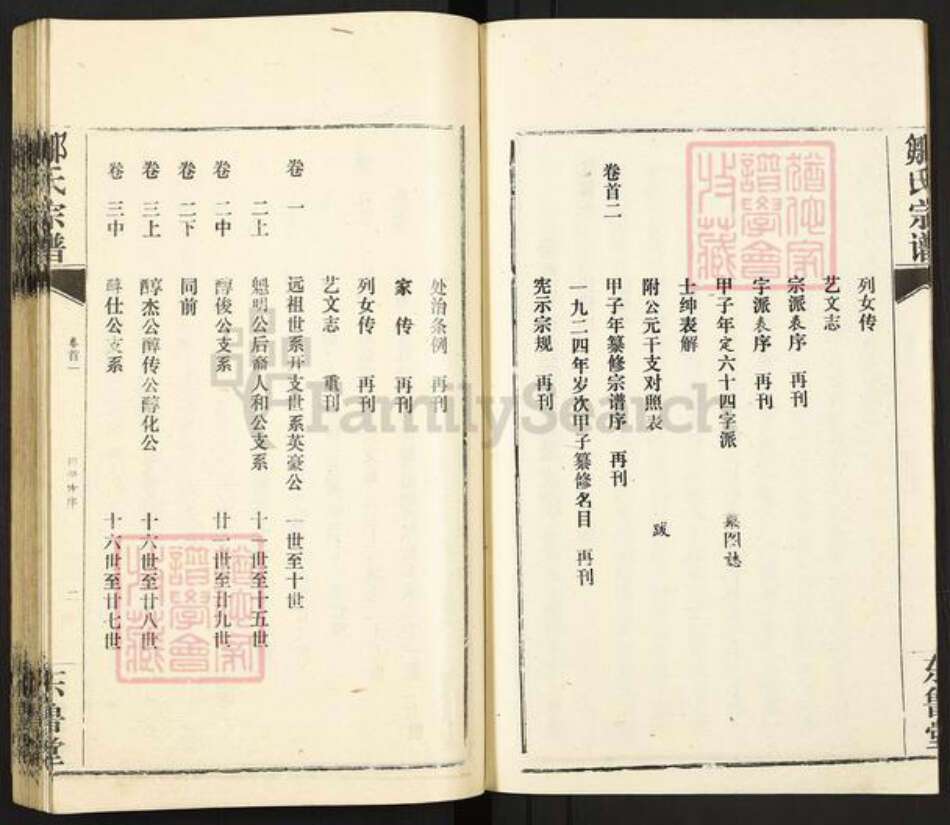 邹氏宗谱
东鲁堂
列女传
艺文志
宗派表序 再刊
字派表序 再刊
甲子年定六十四字派 墓图志
士绅表解
附公元干支对照表 跋
卷首二 甲子年纂修宗谱序 再刊
一九二四年岁次甲子纂修名目 再刊
宪示宗规 再刊
处治条例 再刊
家传 再刊
列女传 再刊
艺文志 重刊
卷一 远祖世系并支世系英豪公 一世至十世
二上 魁明公后裔人和公支系 十一世至十五世
卷二中 醇俊公支系 廿一世至廿九世
卷二下 同前
卷三上 醇杰公醇传公醇化公 十六世至廿八世
卷三中 醇仕公支系 十六世至廿七世
邹氏宗谱
卷首一
一
东鲁堂
犹他家
谱学会
收藏
犹他家
谱学会
收藏
FamilySearch